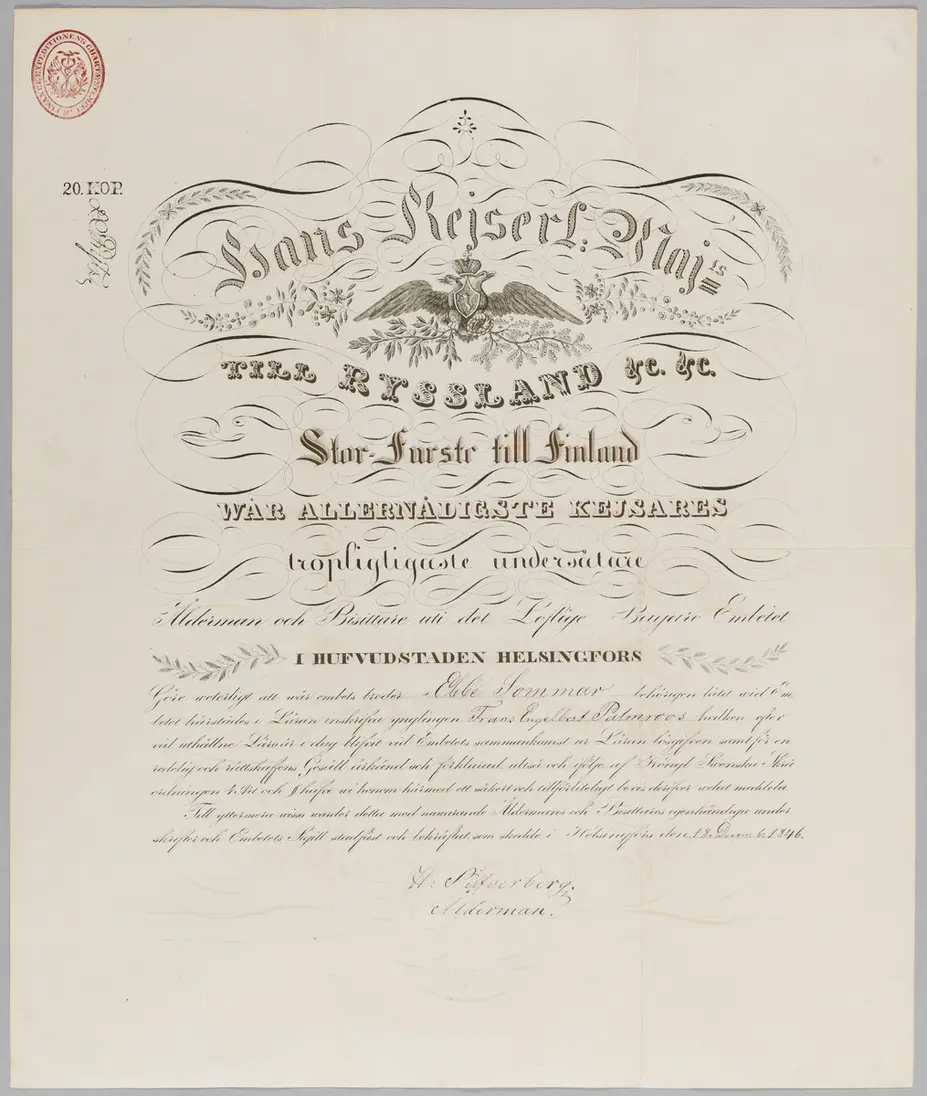 FINANCE EXPEDITIONENS CHARTÆ
20. KOP.
Hans Kejserl: Maj:ts
TILL RYSSLAND &C. &C.
Stor-Furste till Finland
WÅR ALLERNÅDIGSTE KEJSARES
tropligtigaste undersåtare
Ålderman och Bisittare uti det Loflige Embetet
I HUFVUDSTADEN HELSINGFORS
Göre weterligt att wår embets broder Ebbe Sommar behörigen låtit wid Em-
betet härstädes i Läran inskrifva ynglingen Frans Engelbert Palmroos hvilken efter
väl uthållne Läroår i dag blifvit vid Embetets sammankomst ur Läran lösgifven samt för en
redelig och rättskaffens Gesäll ärkänd och förklarad, altså och i följe af Kongl Svenska Skrå
ordningen 4 Art och § hafve wi honom härmed ett säkert och tillförliteligt bevis deröfver velat meddela
Till yttermera wisso warder detta med nuvarande Åldermans och Bisittares egenhändige under
skrifter och Embetets Sigill stadfäst och bekräftad, som skedde i Helsingfors den 18 1846.
H: Silfverberg.
Alderman.